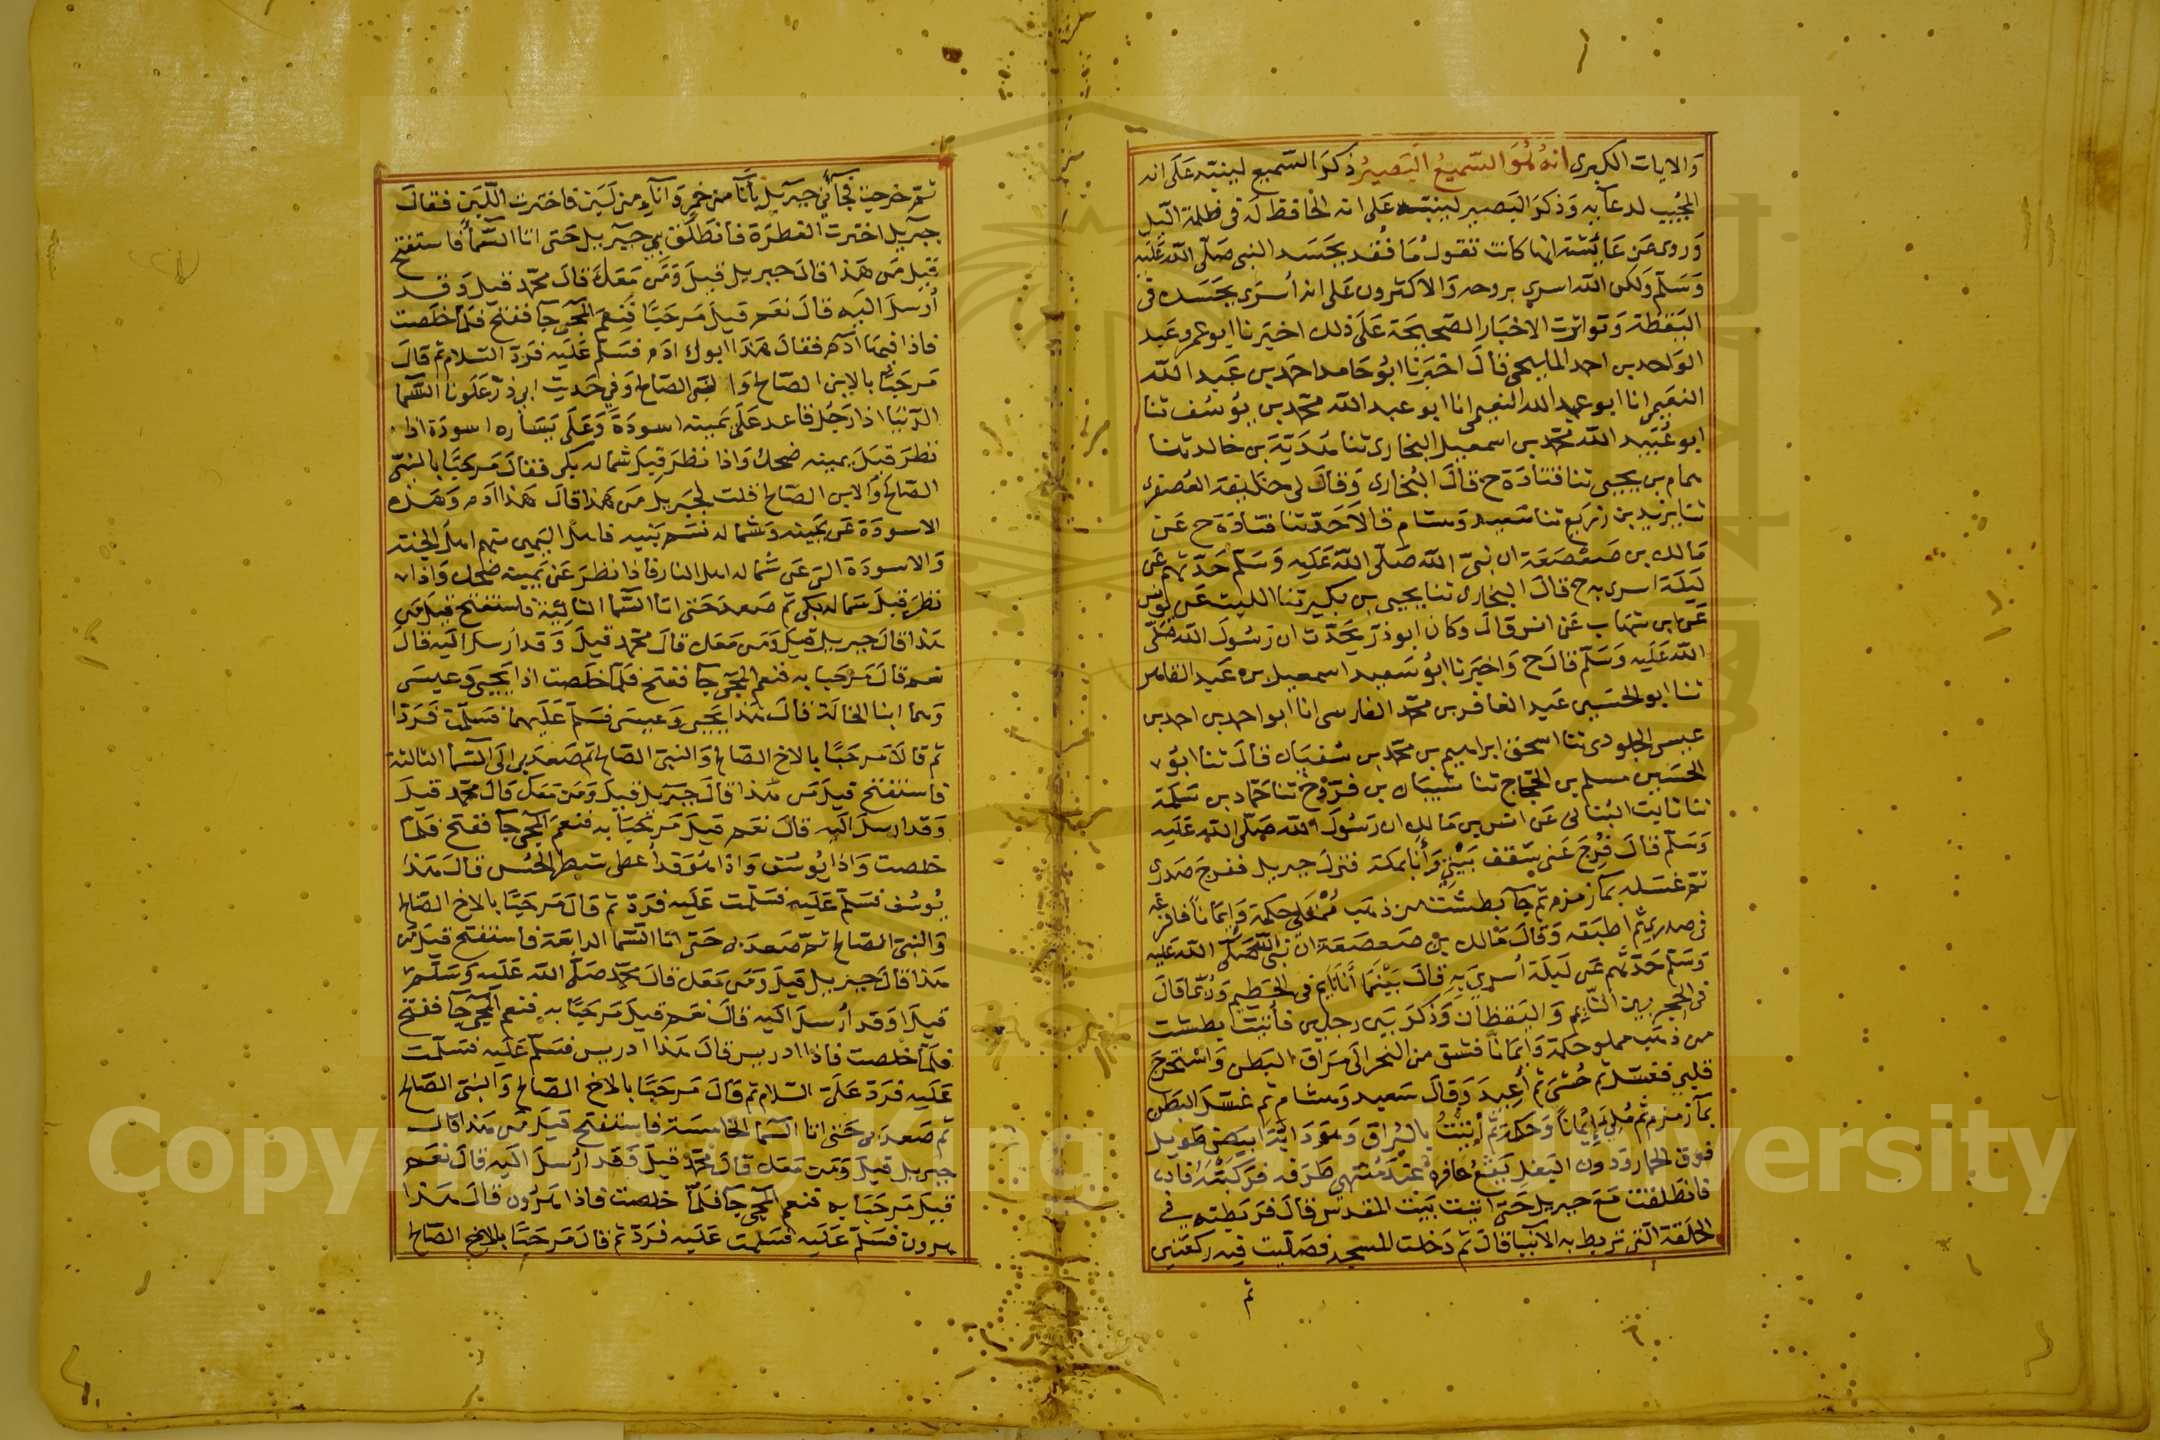 والايات الكبرى انه هو السميع البصير ذكر السميع لينبه على انه
المجيب لدعآيه وذكر البصير لينبه على انه الحافظ له فى ظلمة الليل
وروى عن عايشة انها كانت تقول ما فُقد بجسد النبى صلى الله عليه
وسلم ولكن الله اسرى بروحه والاكثرون على انه أسرى بجسده فى
اليقظة وتواترت الاخبار الصحيحة على ذلك اخبرنا ابو عمرو عبد
الواحد بن احمد المليحى قال اخبرنا ابو حامد احمد بن عبد الله
النعيمى انا ابو عبد الله النعيمى انا ابو عبد الله محمد بن يوسف ثنا
ابو عبيد الله محمد بن اسمعيل البخارى ثنا هدية بن خالد ثنا
همام بن يحيى ثنا قتادة ح قال البخارى وقال لى خليفة العصفرى
ثنا يزيد بن زريع ثنا سعيد وهشام قالا حدثنا قتادة ح عن
مالك بن صعصعة ان نبى الله صلى الله عليه وسلم حدثهم عن
ليلة اسرى به ح قال البخارى ثنا يحيى بن بكير ثنا الليث عن يونس
عن ابن شهاب عن انس قال وكان ابو ذر يحدث ان رسول الله صلى
الله عليه وسلم قال ح واخبرنا ابو سعيد اسمعيل بن عبد القاهر
ثنا ابو الحسين عبد الغافر بن محمد الفارسى انا ابو احمد بن احمد بن
عيسى الجلودى ثنا اسحق ابراهيم بن محمد بن سفيان قال ثنا ابو
الحسين مسلم بن الحجاج ثنا شيبان بن فروخ ثنا حماد بن سلمة
ثنا ثابت البنانى عن انس بن مالك ان رسول الله صلى الله عليه
وسلم قال فرج عنى سقف بيتى وأنا بمكة فنزل جبريل ففرج صدرى
ثم غسله بمآ زمزم ثم جآ بطست من ذهب ممتلى حكمة وايمانا فافرغه
فى صدرى ثم اطبقه وقال مالك بن صعصعة ان نبى الله صلى الله عليه
وسلم حدثهم عن ليلة أسرى به قال بينما أنا نايم فى الحطيم وربما قال
فى الحجر بين النايم واليقظان وذكر بين رجلين فأتيت بطست
من ذهب مملو حكمة وايمانا فشق من النحر الى مراق البطن واستخرج
قلبى فغسل ثم حشى ثم أعيد وقال سعيد وهشام ثم غسل البطن
بمآ زمزم ثم ملى ايمانا وحكمة ثم أتيت بالبراق وهو دابة ابيض طويل
فوق الحمار ودون البغل يقع حافره عند منتهى طرفه فركبته
فانطلقت مع جبريل حتى اتيت بيت المقدس قال فربطته فى
الحلقة التى تربط به الانبيا قال ثم دخلت المسجد فصليت فيه ركعتين
ثم
ثم خرجت فجآنى جبريل بأنا من خمر وانآء من لبن فاخترت اللبن فقال
جبريل اخترت الفطرة فانطلق بى جبريل حتى اتا السمآ فاستفتح
قيل من هذا قال جبريل قيل ومن معك قال محمد قيل وقد
أرسل اليه قال نعم قيل مرحبا فنعم المجى جآ ففتح فلما خلصت
فاذا فيها آدم فقال هذا ابوك ادم فسلم عليه فرد السلام ثم قال
مرحبا بالابن الصالح والنبى الصالح وفى حديث ابى ذر علونا السما
الدنيا اذا رجل قاعد على يمينه اسودة وعلى يساره اسودة اذا
نظر قبل يمينه ضحك واذا نظر قبل شماله بكى فقال مرحبا بالنبى
الصالح والابن الصالح قلت لجبريل من هذا قال هذا ادم وهذه
الاسودة عن يمينه وشماله نسم بنيه فاهل اليمين منهم اهل الجنة
والاسودة التى عن شماله اهل النار فاذا نظر عن يمينه ضحك واذا
نظر قبل شماله بكى ثم صعد حتى اتا السما الثانية فاستفتح قيل من
هذا قال جبريل قيل ومن معك قال محمد قيل وقد ارسل اليه قال
نعم قال مرحبا به فنعم المجى جآ ففتح فلما خلصت اذا يحيى وعيسى
وهما ابنا الخالة قال هذا يحيى وعيسى فسلم عليهما فسلمت فردا
ثم قالا مرحبا بالاخ الصالح والنبى الصالح ثم صعد بى الى السما الثالثة
فاستفتح قيل من هذا قال جبريل قيل ومن معك قال محمد قيل
وقد ارسل اليه قال نعم قيل مرحبا به فنعم المجى جآ ففتح فلما
خلصت واذا يوسف واذا هو قد أعطى شطر الحسن قال هذا
يوسف فسلم عليه فسلمت عليه فرد ثم قال مرحبا بالاخ الصالح
والنبى الصالح ثم صعد بى حتى اتا السما الرابعة فاستفتح قيل من
هذا قال جبريل قيل ومن معك قال محمد صلى الله عليه وسلم
قيل اوقد أرسل اليه قال نعم قيل مرحبا به فنعم المجى جآ ففتح
فلما خلصت فاذا ادريس قال هذا ادريس فسلم عليه فسلمت
عليه فرد على السلام ثم قال مرحبا بالاخ الصالح والنبى الصالح
ثم صعد بى حتى اتا السما الخامسة فاستفتح قيل من هذا قال
جبريل قيل ومن معك قال محمد قيل وقد أرسل اليه قال نعم
قيل مرحبا به فنعم المجى جآ فلما خلصت فاذا هرون قال هذا
هرون فسلم عليه فسلمت عليه فرد ثم قال مرحبا بالاخ الصالح
Copyright © King Saud University